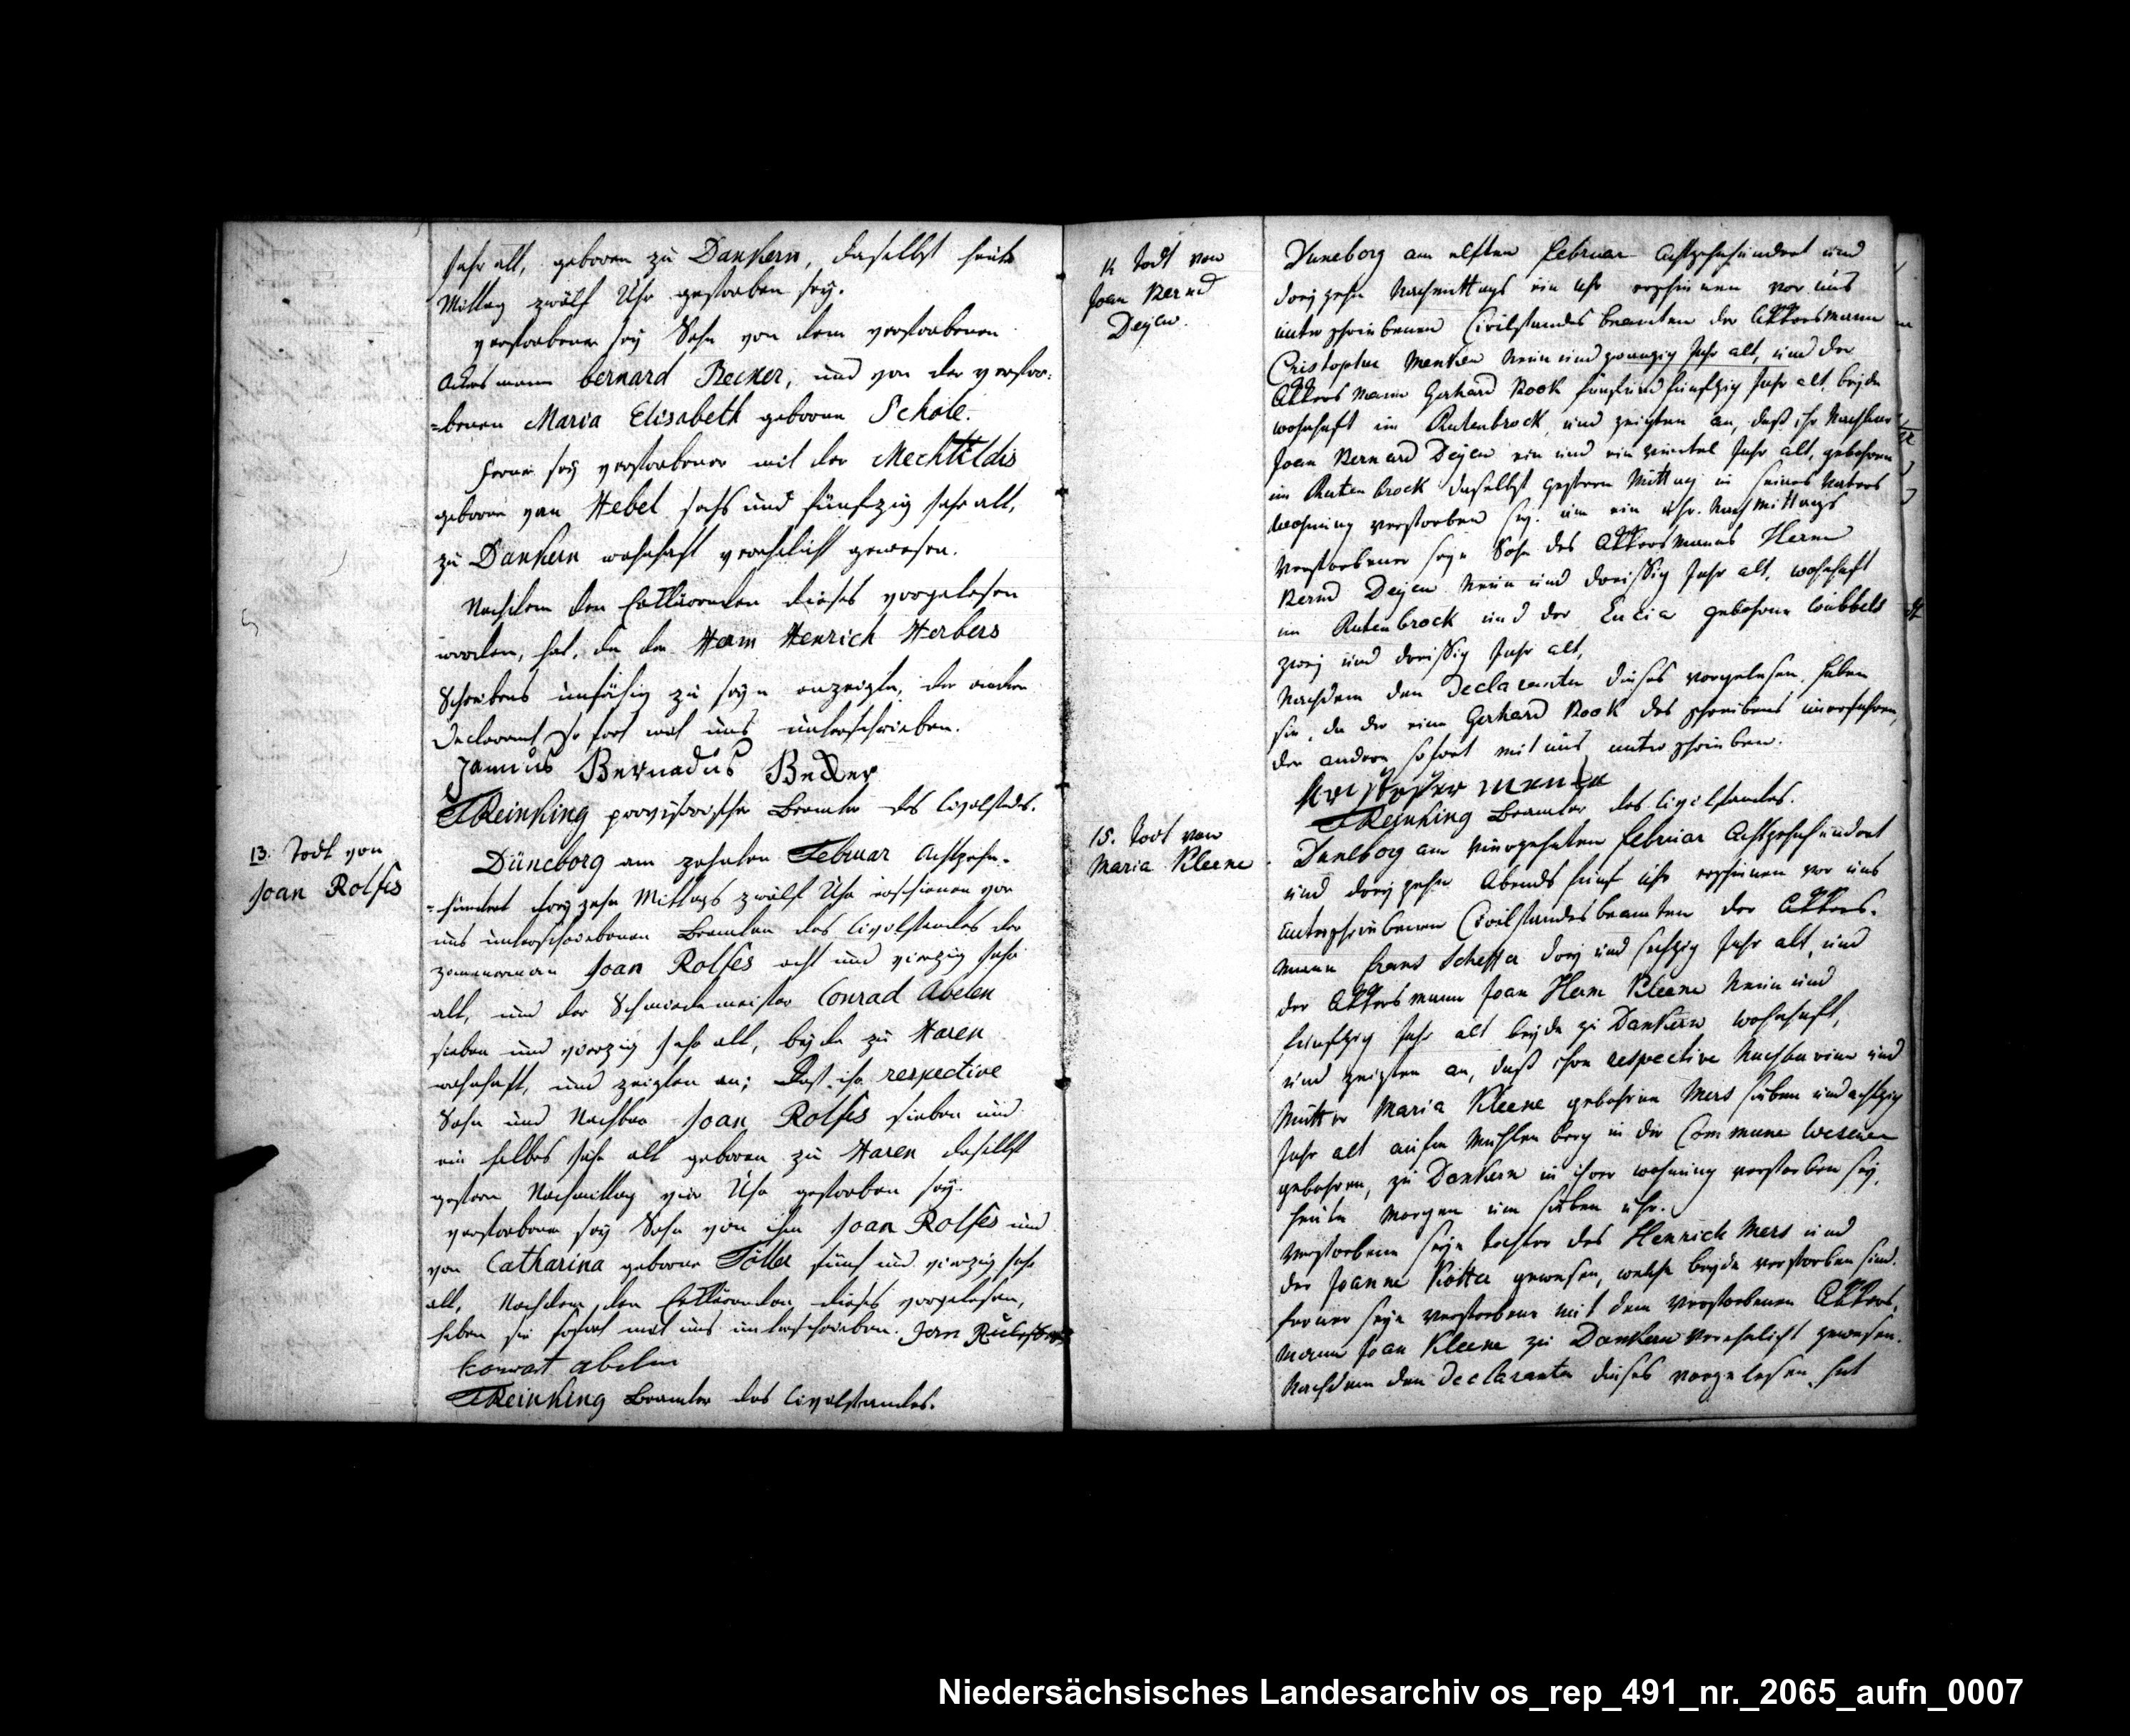 Jahr alt, geboren zu Dankern, daselbst heute
Mittag zwölf Uhr gestorben sey.
verstorbener sey Sohn von dem verstorbenen
Akersmann bernard Becker, und von der verstor=
=benen Maria Elisabeth geborne Schole.
ferner sey verstorbener mit der Mechtildis
geborne van Hebel sechs und fünfzig Jahr alt,
zu Dankern wohnhaft verehelicht gewesen.
Nachdem den Erklärenden dieses vorgelesen
worden, hat, da der Herm Henrich Herbers
Schreibens unfähig zu seyn anzeigte, der andere
Declarant so fort mit uns unterschrieben.
Bernadus Becker
Reinking provisorischer Beamter des Civilstandes.
13. Todt von
Joan Rolfes
Düneborg am zehnten Februar Achtzehn-
=hundert dreyzehn Mittags zwölf Uhr erschienen vor
uns unterschriebenen Beamten des Civilstandes der
Joan Rolfes acht und vierzig Jahr
alt, und der Schmiedemeister Conrad Abelen
sieben und vierzig Jahr alt, beyde zu Haren
wohnhaft, und zeigten an; Daß ihr respective
Sohn und Nachbar Joan Rolfes sieben und
ein halbes Jahr alt geboren zu Haren daselbst
gestern Nachmittag vier Uhr gestorben sey.
verstorbener sey Sohn von ihm Joan Rolfes und
von Catharina geborne Töller fünf und vierzig Jahr
alt, Nachdem den Erklärenden dieses vorgelesen,
haben sie sofort mit uns unterschrieben. Jan
konrart abelen
Reinking Beamter des Civilstandes.
14 Todt von
Joan Bernd
Deyen.
Duneborg am elften februar Achtzehnhundert und
dreyzehn Nachmittags ein Uhr erschienen vor uns
unterschriebenen Civilstandesbeamten der Akkersmann
Cristopher Menken Neun und zwanzig Jahr alt, und der
Akkersmann Gerhard Rook fünfundfünfzig Jahr alt, beyde
wohnhaft im Rutenbrock, und zeigten an, daß ihr Nachbar
Joan Bernard Deyen ein und ein viertel Jahr alt, gebohren
im Rutenbrock daselbst gestern Mittag in seines Vaters
Wohnung verstorben sey. um ein Uhr. Nachmittags
Verstorbener seye Sohn des Akkersmanns Herm
Bernd Deyen Neun und dreißig Jahr alt, wohnhaft
im Rutenbrock und der Lucia gebohrne Wübbels
zwey und dreißig Jahr alt,
Nachdem den Declaranten dieses vorgelesen, haben
sie, da der eine Gerhard Rook des schreibens unerfahren,
der andere sofort mit uns unterschrieben.
kristoffer menke
Reinking Beamter des Civilstandes.
15. Todt von
Maria Kleene
Duneborg am Vierzehnten februar Achtzehnhundert
und dreyzehn Abends fünf Uhr erschienen vor uns
unterschriebenen Civilstandesbeamten der Akkers-
mann frans Scheffer drey und sechzig Jahr alt, und
der Akkersmann Joan Herm Kleene Neun und
fünfzig Jahr alt beyde zu Dankern wohnhaft,
und zeigten an, daß ihre respective Nachbarinn und
Mutter Maria Kleene gebohrne Mers sieben und achtzig
Jahr alt aufm Mühlenberg in der Commune Wesuwe
gebohren, zu Dankern in ihrer wohnung verstorben sey,
heute Morgen um sieben Uhr.
Verstorbene seye tochter des Henrich Mers und
der Joanne Kötter gewesen, welche beyde verstorben sind.
ferner seye verstorbene mit dem Verstorbenen Akkers,
mann Joan Kleene zu Dankern Verehelicht gewesen.
Nachdem den Declaranten dieses vorgelesen, hat
Niedersächsisches Landesarchiv os_rep_491_nr._2065_aufn_0007